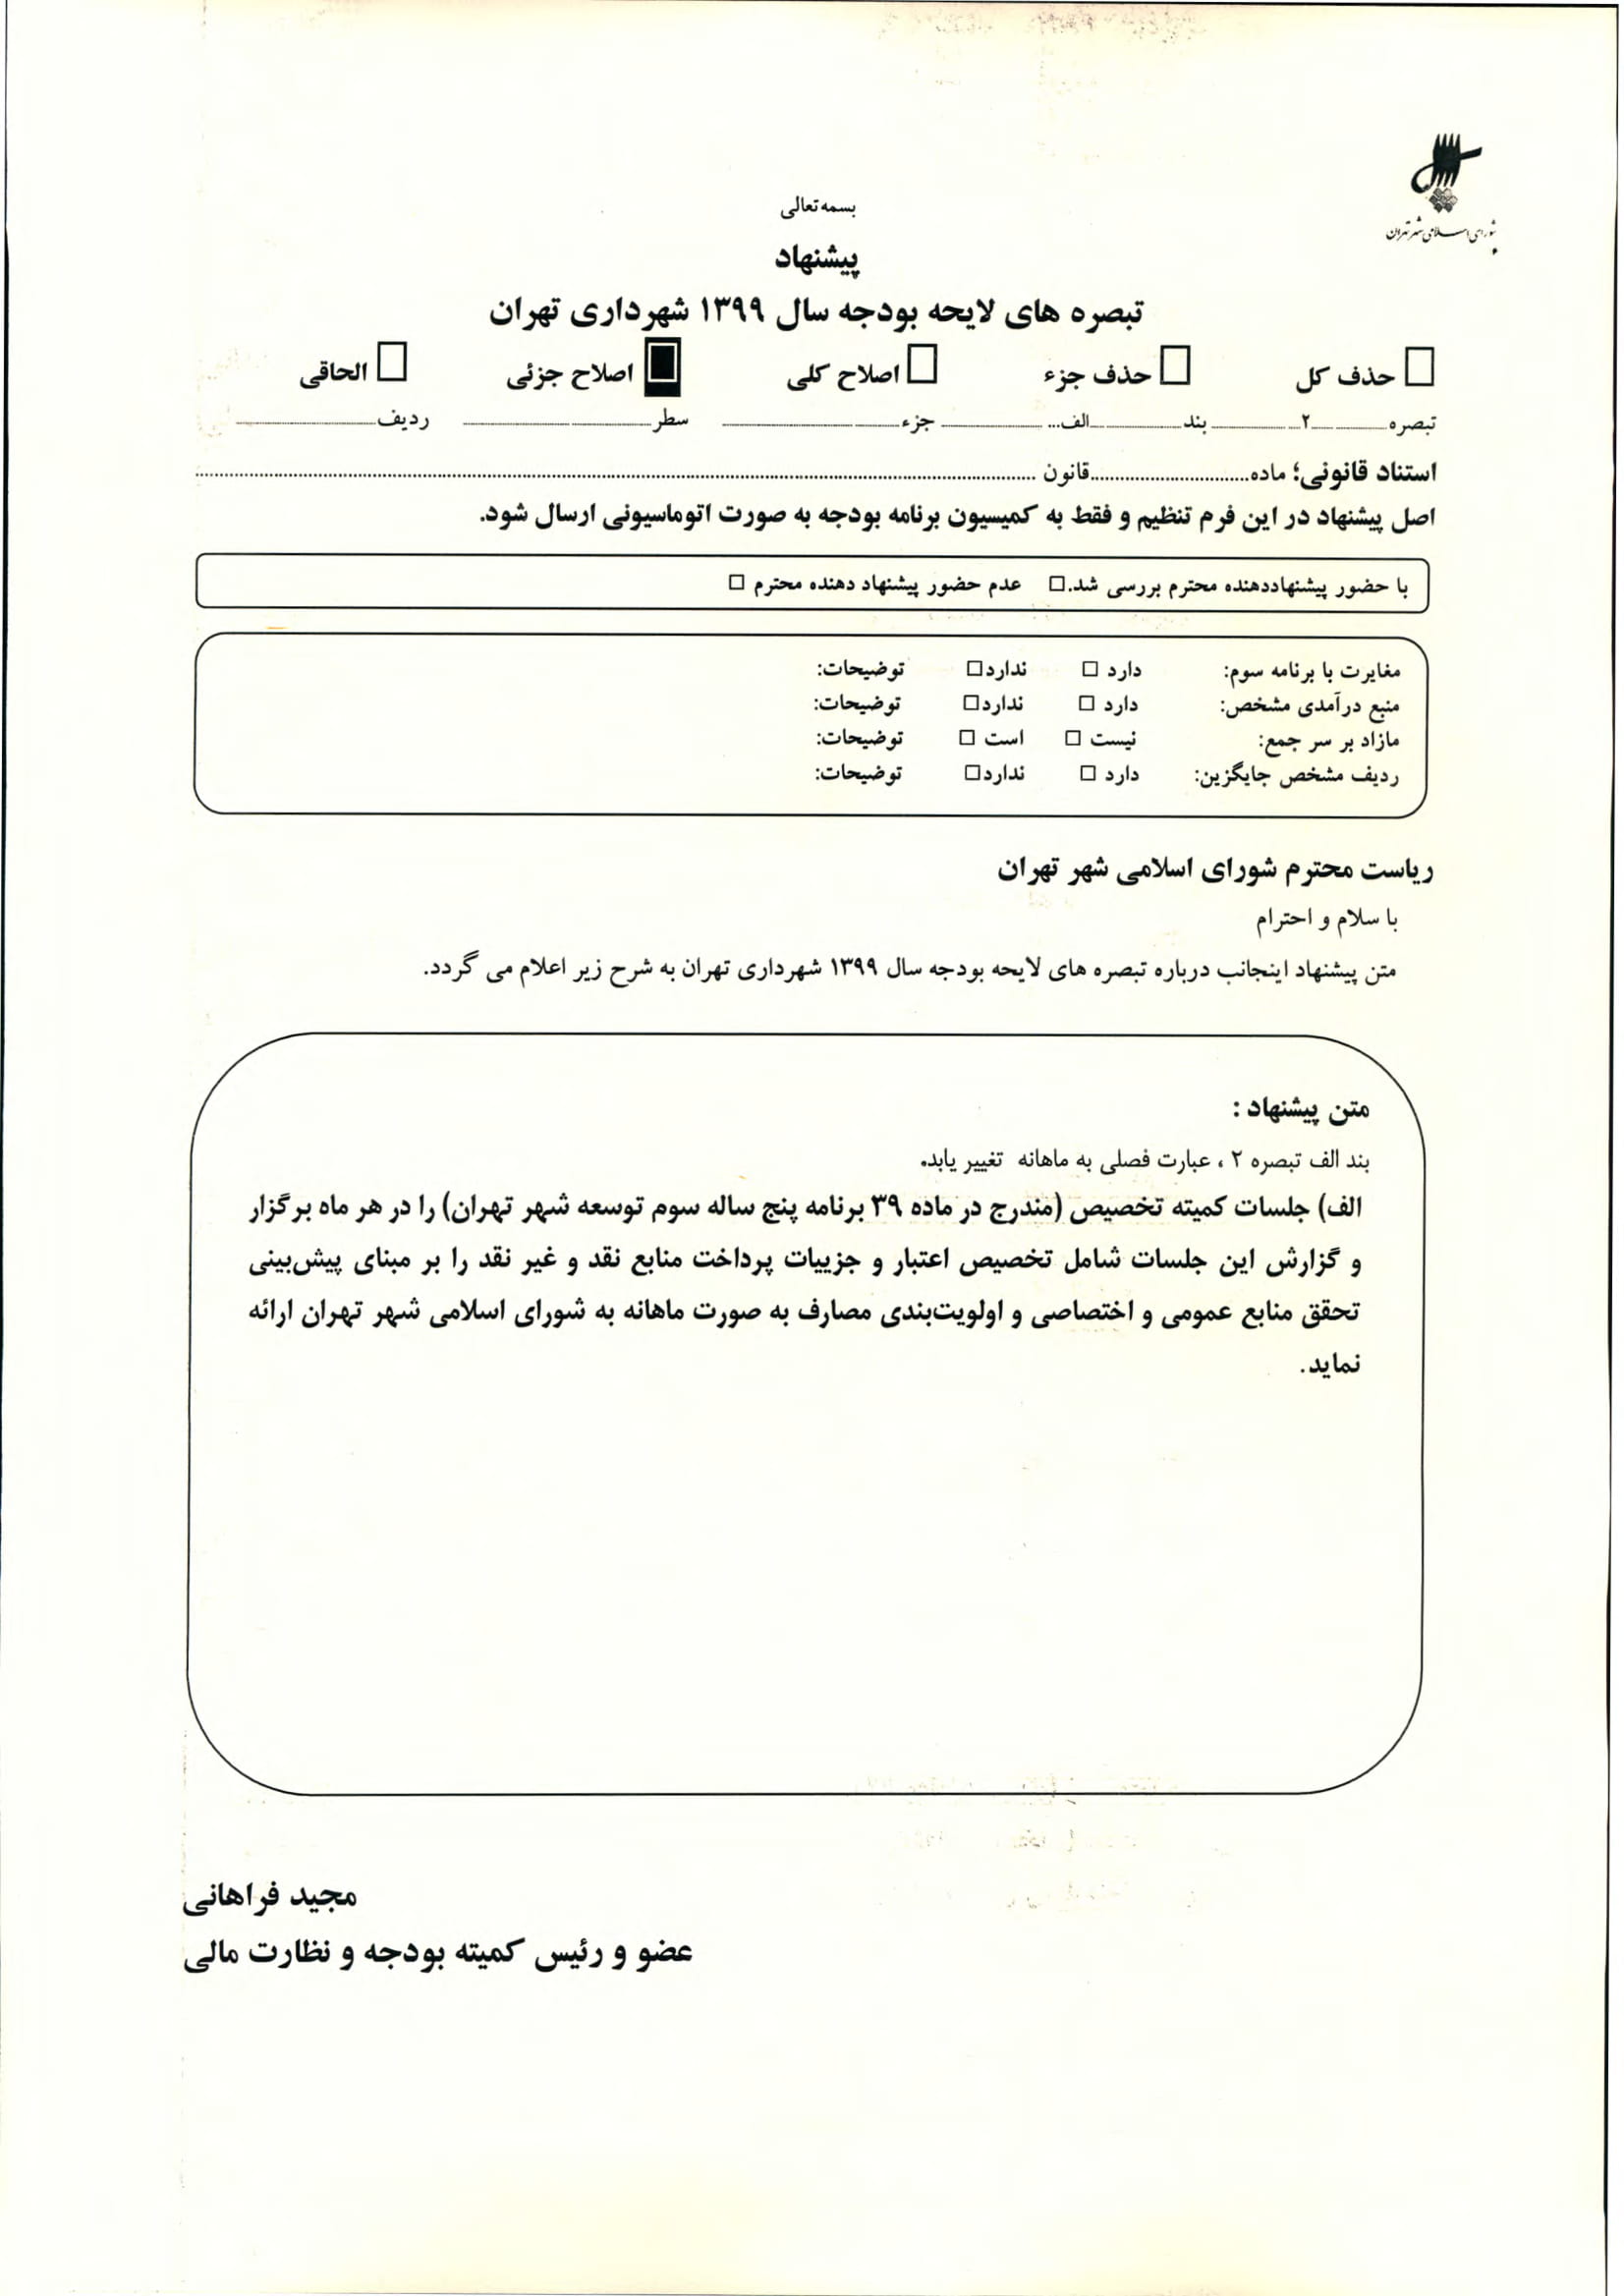 شورای اسلامی شهر تهران
بسمه تعالی
پیشنهاد
تبصره های لایحه بودجه سال ۱۳۹۹ شهرداری تهران
☐ حذف کل ☐ حذف جزء ☐ اصلاح کلی ■ اصلاح جزئی ☐ الحاقی
تبصره............۲............بند............الف............جزء............سطر............ردیف............
استناد قانونی؛ ماده............قانون............
اصل پیشنهاد در این فرم تنظیم و فقط به کمیسیون برنامه بودجه به صورت اتوماسیونی ارسال شود.
با حضور پیشنهاددهنده محترم بررسی شد.☐ عدم حضور پیشنهاد دهنده محترم ☐
مغایرت با برنامه سوم: دارد ☐ ندارد☐ توضیحات:
منبع درآمدی مشخص: دارد ☐ ندارد☐ توضیحات:
مازاد بر سر جمع: نیست ☐ است ☐ توضیحات:
ردیف مشخص جایگزین: دارد ☐ ندارد☐ توضیحات:
ریاست محترم شورای اسلامی شهر تهران
با سلام و احترام
متن پیشنهاد اینجانب درباره تبصره های لایحه بودجه سال ۱۳۹۹ شهرداری تهران به شرح زیر اعلام می گردد.
متن پیشنهاد :
بند الف تبصره ۲ ، عبارت فصلی به ماهانه تغییر یابد.
الف) جلسات کمیته تخصیص (مندرج در ماده ۳۹ برنامه پنج ساله سوم توسعه شهر تهران) را در هر ماه برگزار
و گزارش این جلسات شامل تخصیص اعتبار و جزییات پرداخت منابع نقد و غیر نقد را بر مبنای پیش‌بینی
تحقق منابع عمومی و اختصاصی و اولویت‌بندی مصارف به صورت ماهانه به شورای اسلامی شهر تهران ارائه
نماید.
مجید فراهانی
عضو و رئیس کمیته بودجه و نظارت مالی